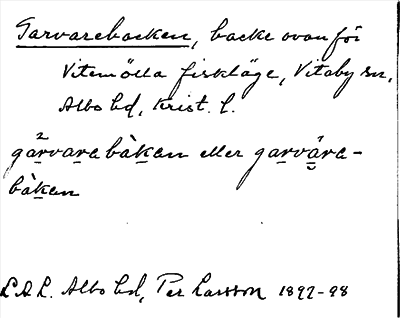 Garvarebacken, backe ovanför
Vitemölla fiskläge, Vitaby sn,
Albo hd, Krist. l.
gārvarabàkan eller garvära-
bàkan
L.A.L. Albo hd, Per Larsson 1897-98